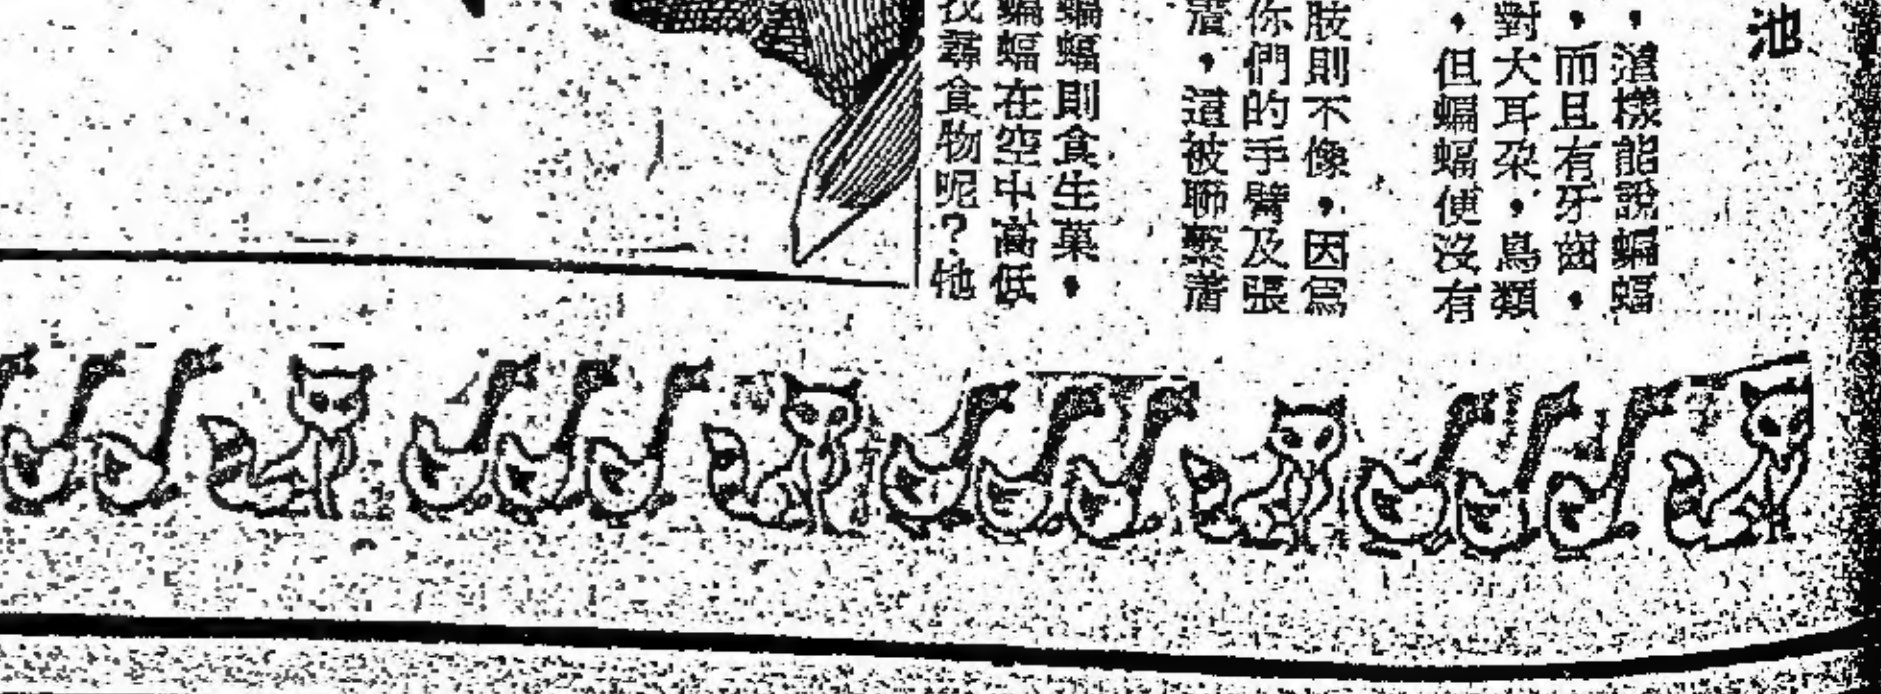 池
，這樣能說蝙蝠
，而且有牙齒。
對大耳朶，鳥類
，但蝙蝠便沒有
肢則不像，因爲
你們的手臂及張
着，這被聯繫着
蝙蝠則食生菓，
蝙蝠在空中高低
找尋食物呢？牠